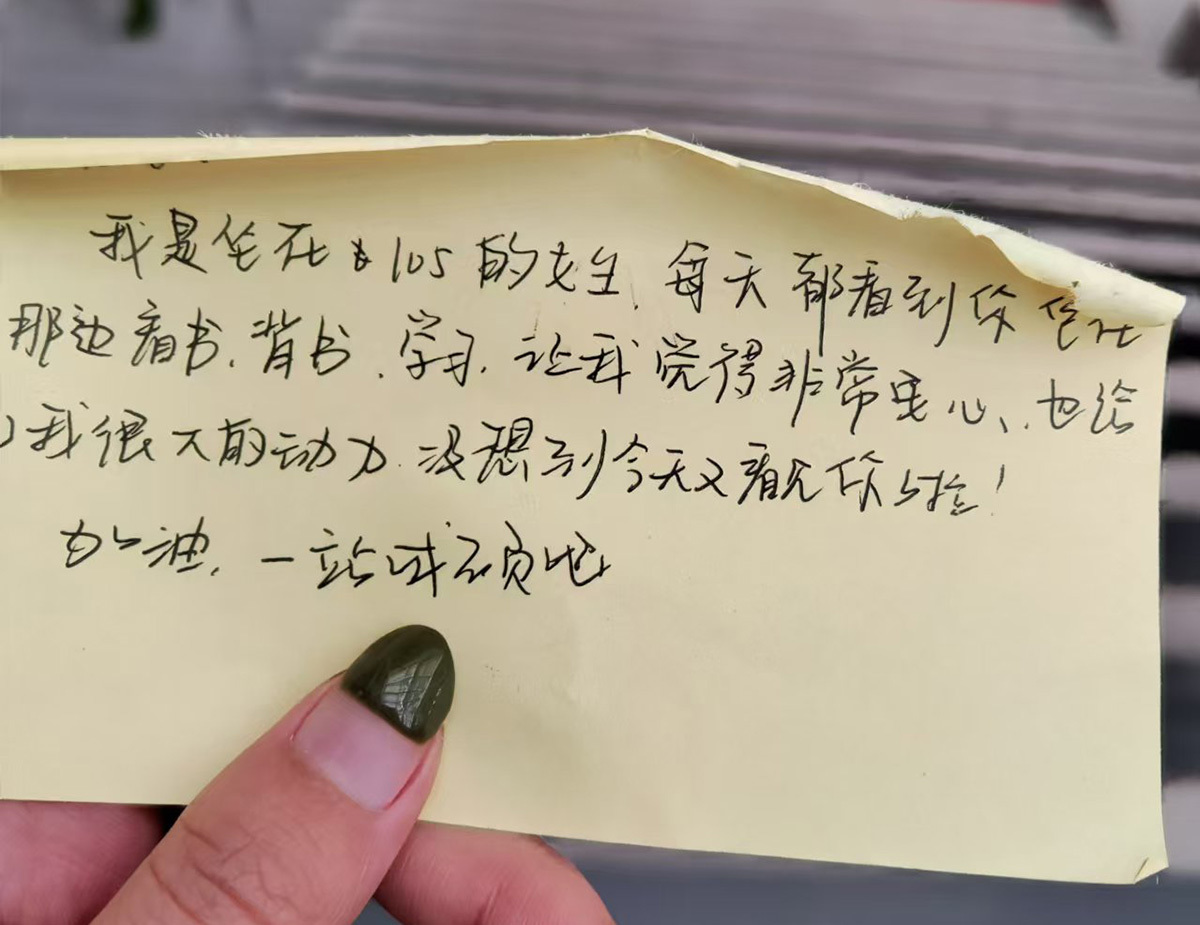 我是坐在105的女生,每天都看到你坐在
那边看书、背书、学习,让我觉得非常安心、也给
我很大的动力.没想到今天又看见你啦!
加油,一站成硕吧